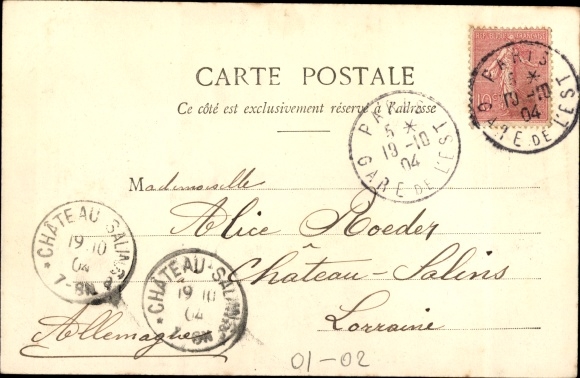 CARTE POSTALE
Ce côté est exclusivement réservé à l'adresse
PARIS
5 *
19 -10
04
GARE DE L'EST
PARIS
*
19 -10
04
GARE DE L'EST
10
Mademoiselle
Alice Roeder
Château-Salins
Lorraine
Allemagne
*CHÂTEAU-SALINS
19 10
04
7-8N
*CHÂTEAU-SALINS
19 10
04
01-02